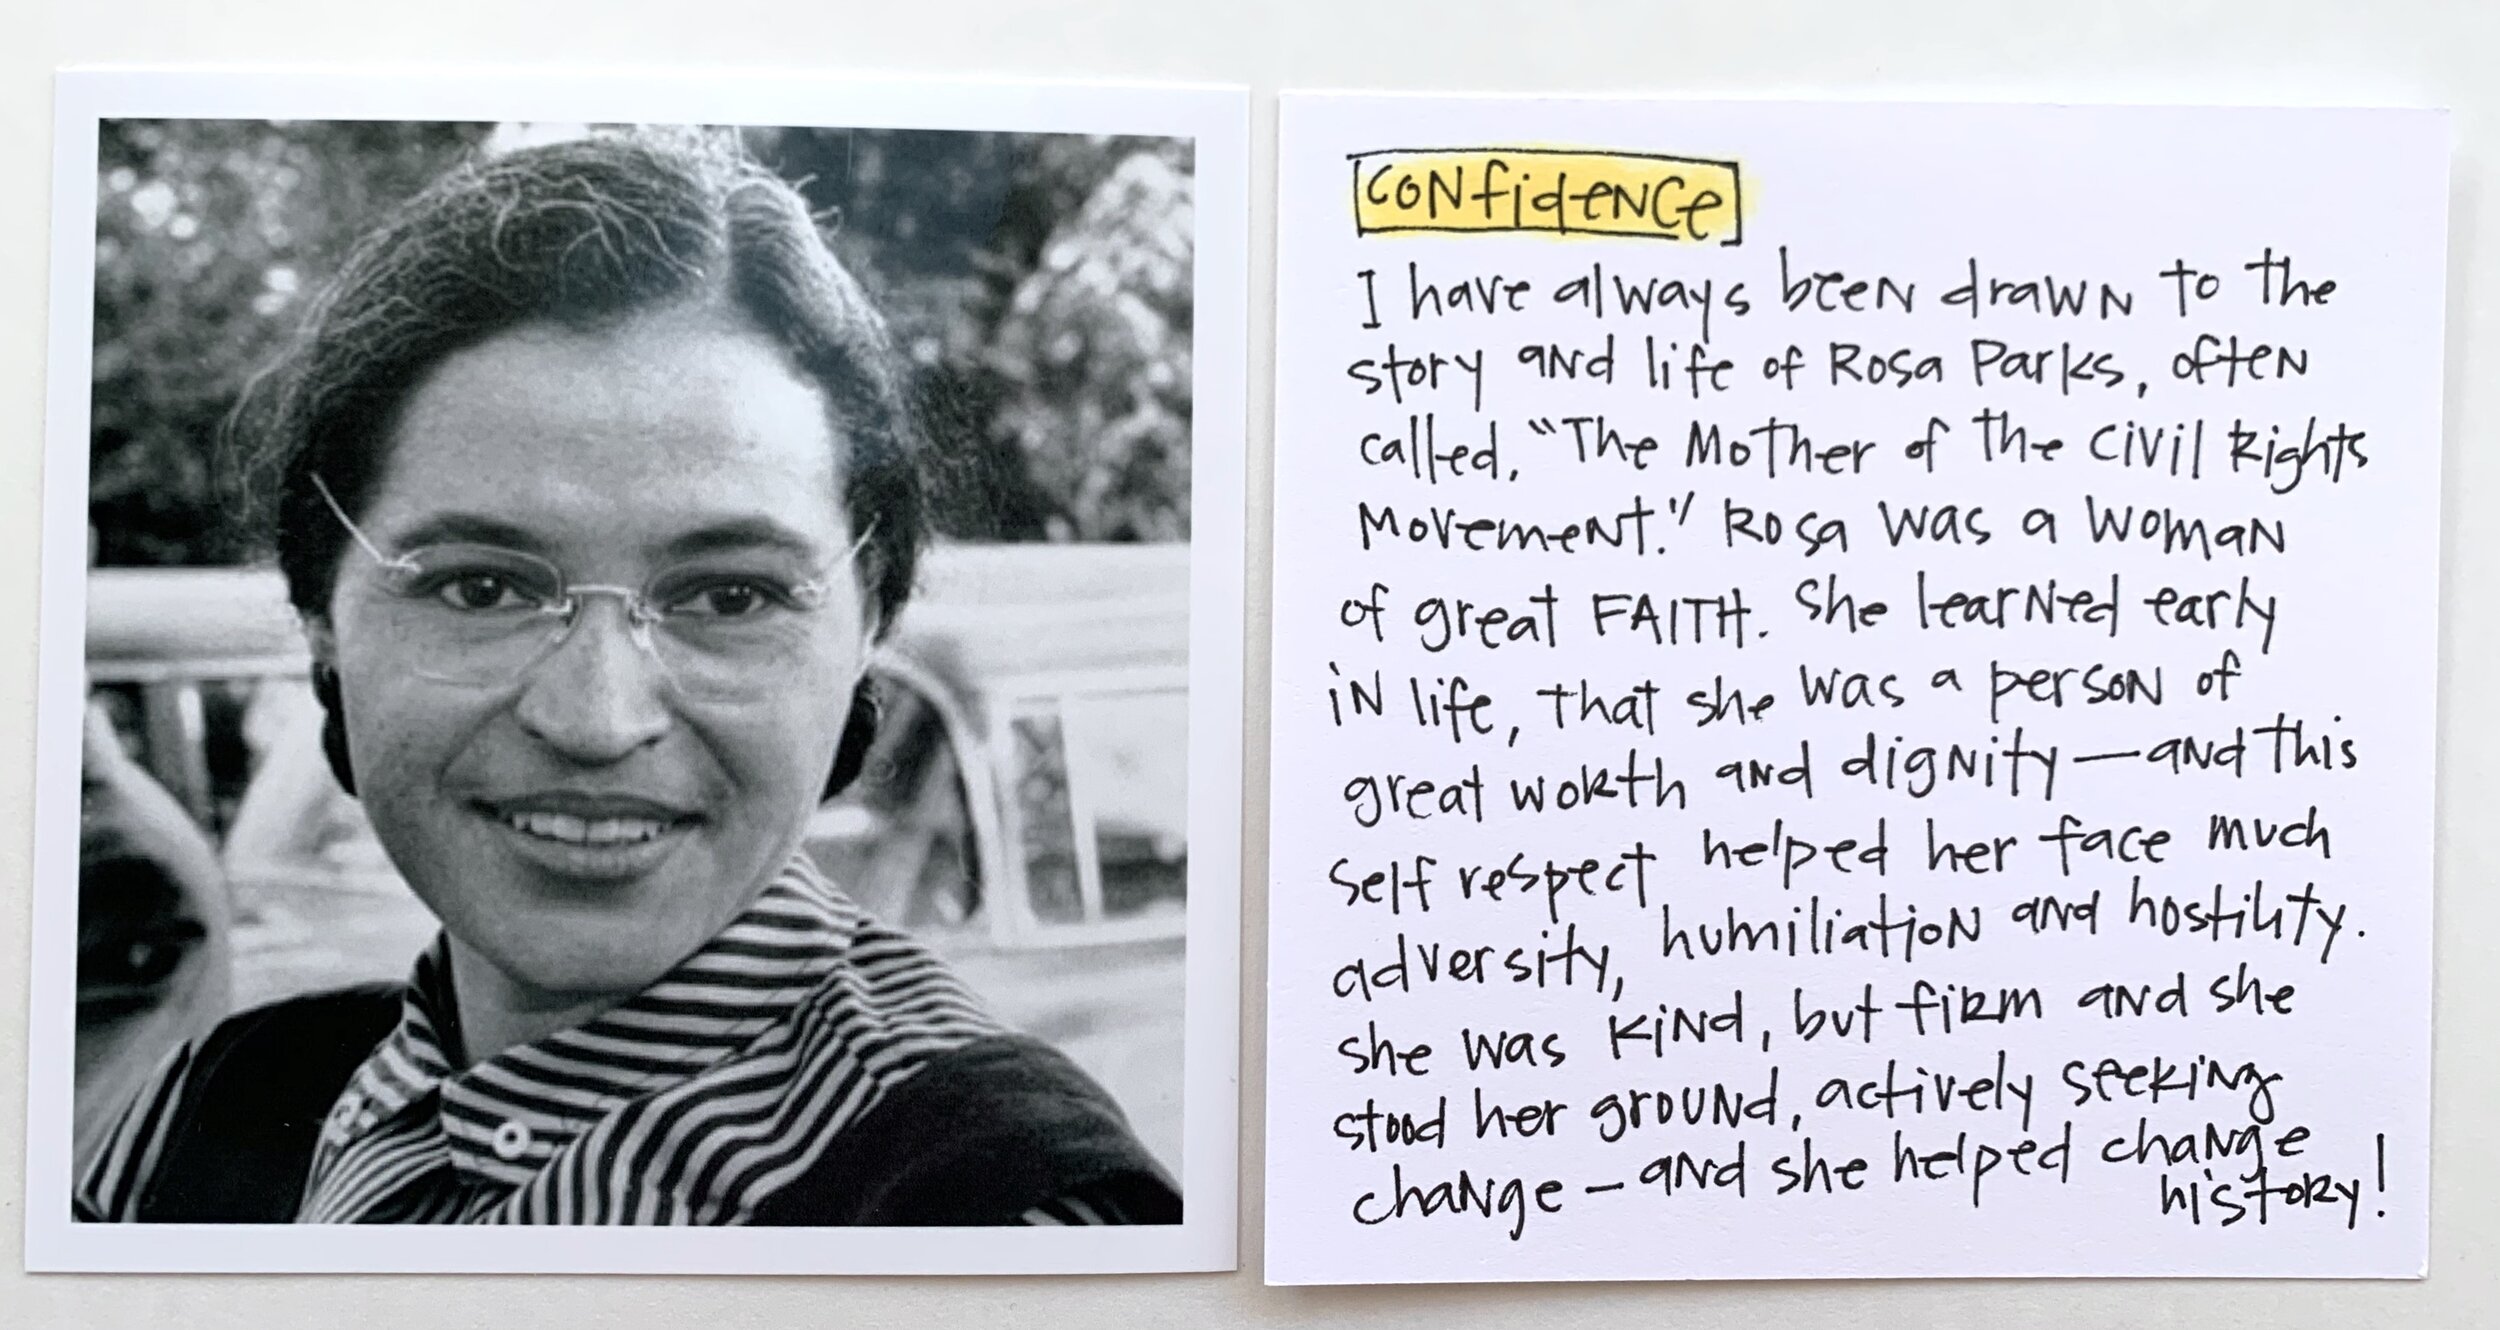 CONfideNCe
I have always been drawN to the
story aNd life of Rosa Parks, ofteN
called, "The Mother of the Civil Rights
Movement." Rosa was a womaN
of great FAITH. She learNed early
iN life, that she was a persoN of
great woRth aNd digNity — aNd this
self respect helped her face much
adversity, humiliatioN aNd hostility.
she was kiNd, but fiRm aNd she
stood her grouNd, actively seekiNg
chaNge — aNd she helped chaNge
histoRy!